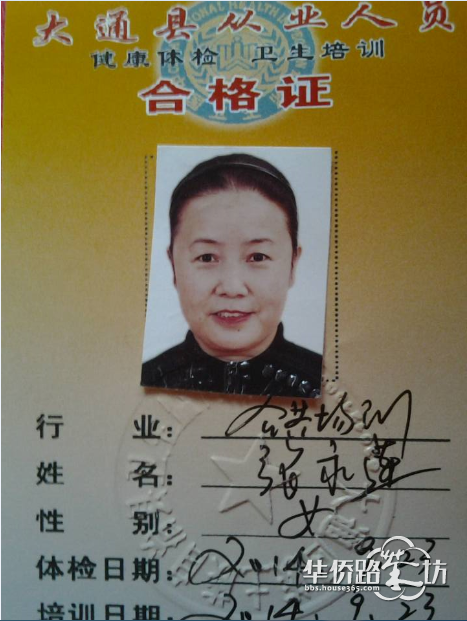 大通县从业人员
健康体检 卫生培训
合格证
行 业: 公共场所
姓 名:
性 别: 女
体检日期: 2014.9.23
培训日期: 2014.9.23
华侨路茶坊
bbs.house365.com